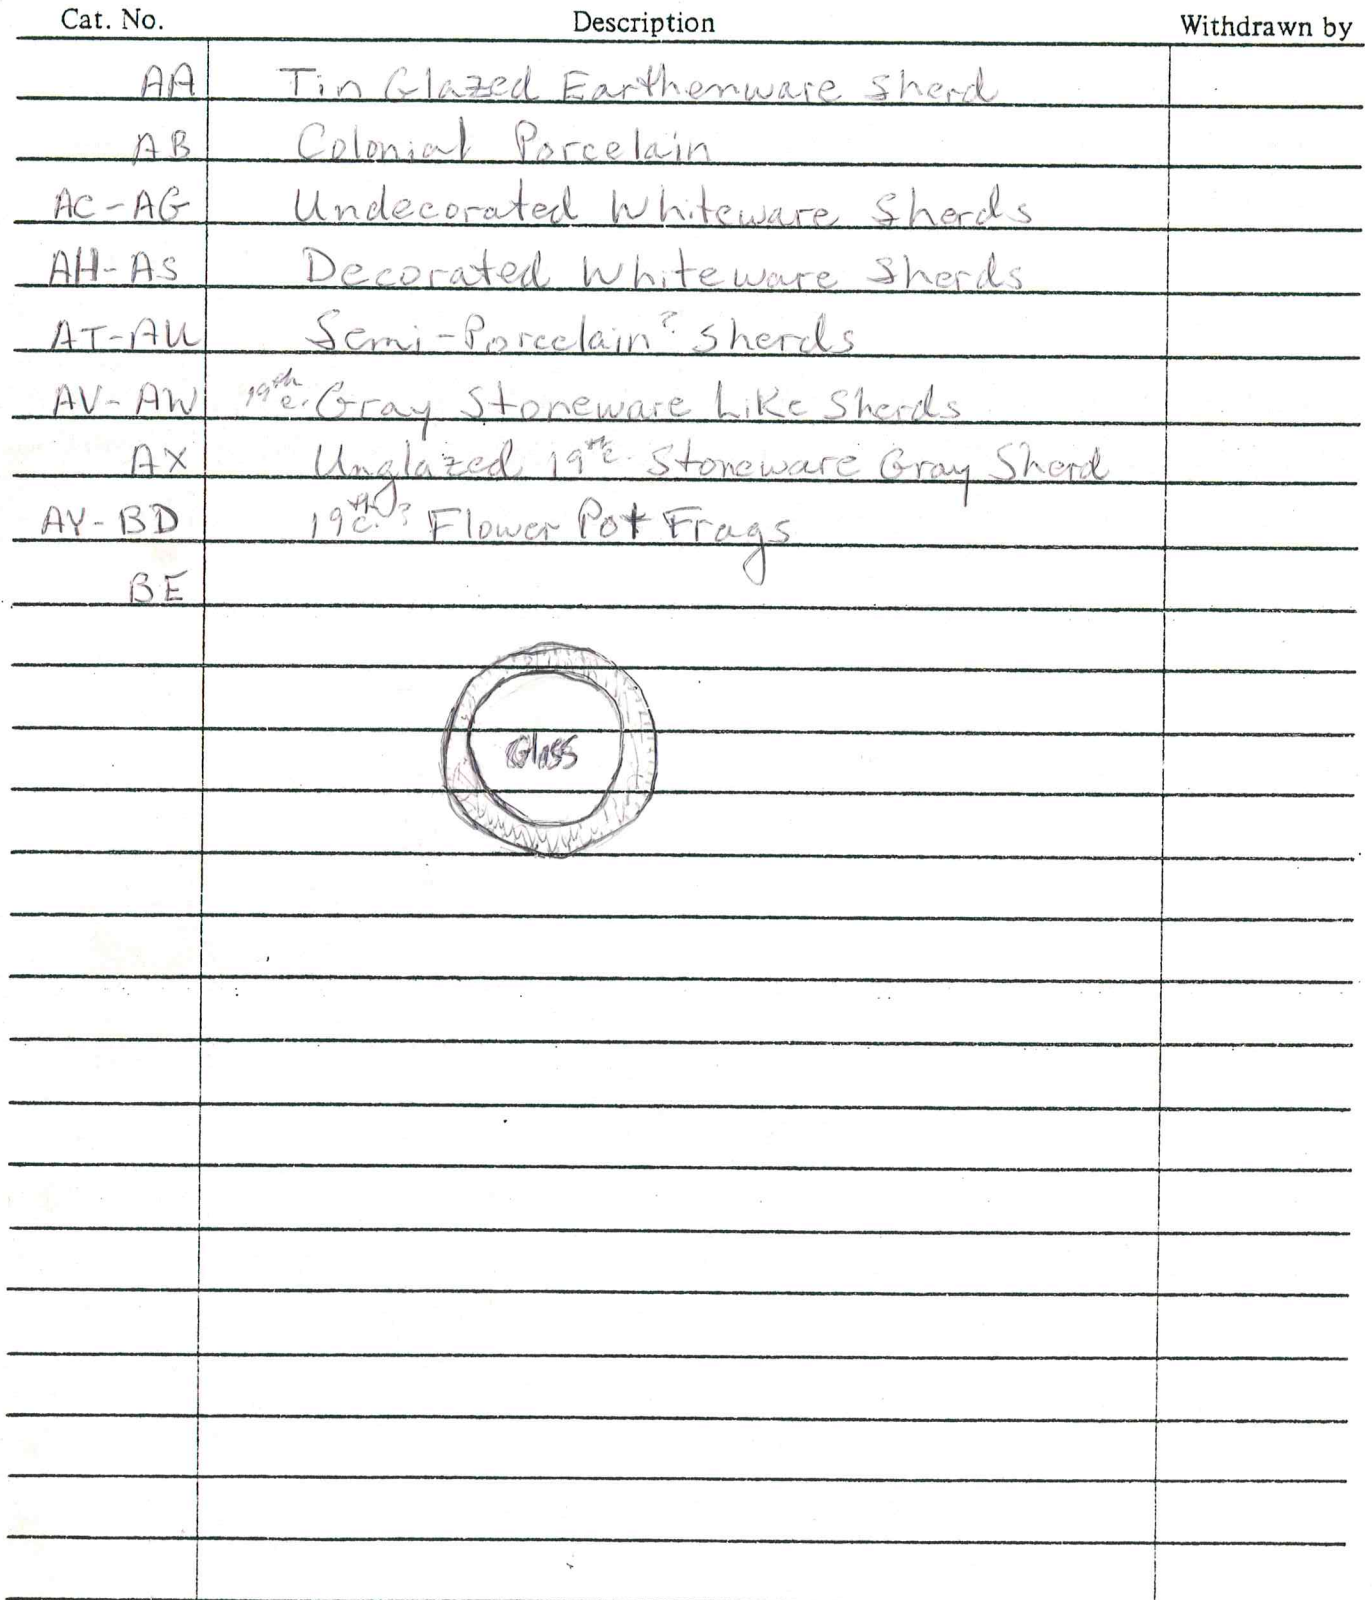 Cat. No. Description Withdrawn by
AA Tin Glazed Earthenware Sherd
AB Colonial Porcelain
AC-AG Undecorated Whiteware Sherds
AH-AS Decorated Whiteware Sherds
AT-AU Semi-Porcelain? Sherds
AV-AW 19th c. Gray Stoneware Like Sherds
AX Unglazed 19th c. Stoneware Gray Sherd
AY-BD 19th c.? Flower Pot Frags
BE
Glass